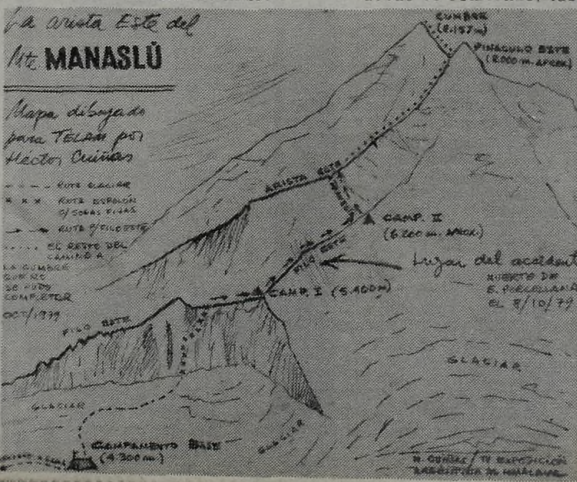 La arista Este del
Mte MANASLÚ
Mapa dibujado
para TELAM por
Héctor Cuiñas
RUTA GLACIAR
RUTA ESPOLON
C/SOGAS FIJAS
RUTA P/FILO ESTE
EL RESTO DEL
CAMINO A
LA CUMBRE
QUE NO
SE PUDO
COMPLETAR
OCT/1979
CUMBRE
(8.157m)
PINACULO ESTE
(8000 m. APROX.)
ARISTA ESTE
CAMP. II
(6.200 m. APROX.)
FILO ESTE
Lugar del accidente
MUERTE DE
E. PORCELLANA
EL 8/10/79
CAMP. I (5.400m)
FILO ESTE
GLACIAR
GLACIAR
GLACIAR
CAMPAMENTO BASE
(4.300 m.)
ARGENTINA AL HIMALAYA